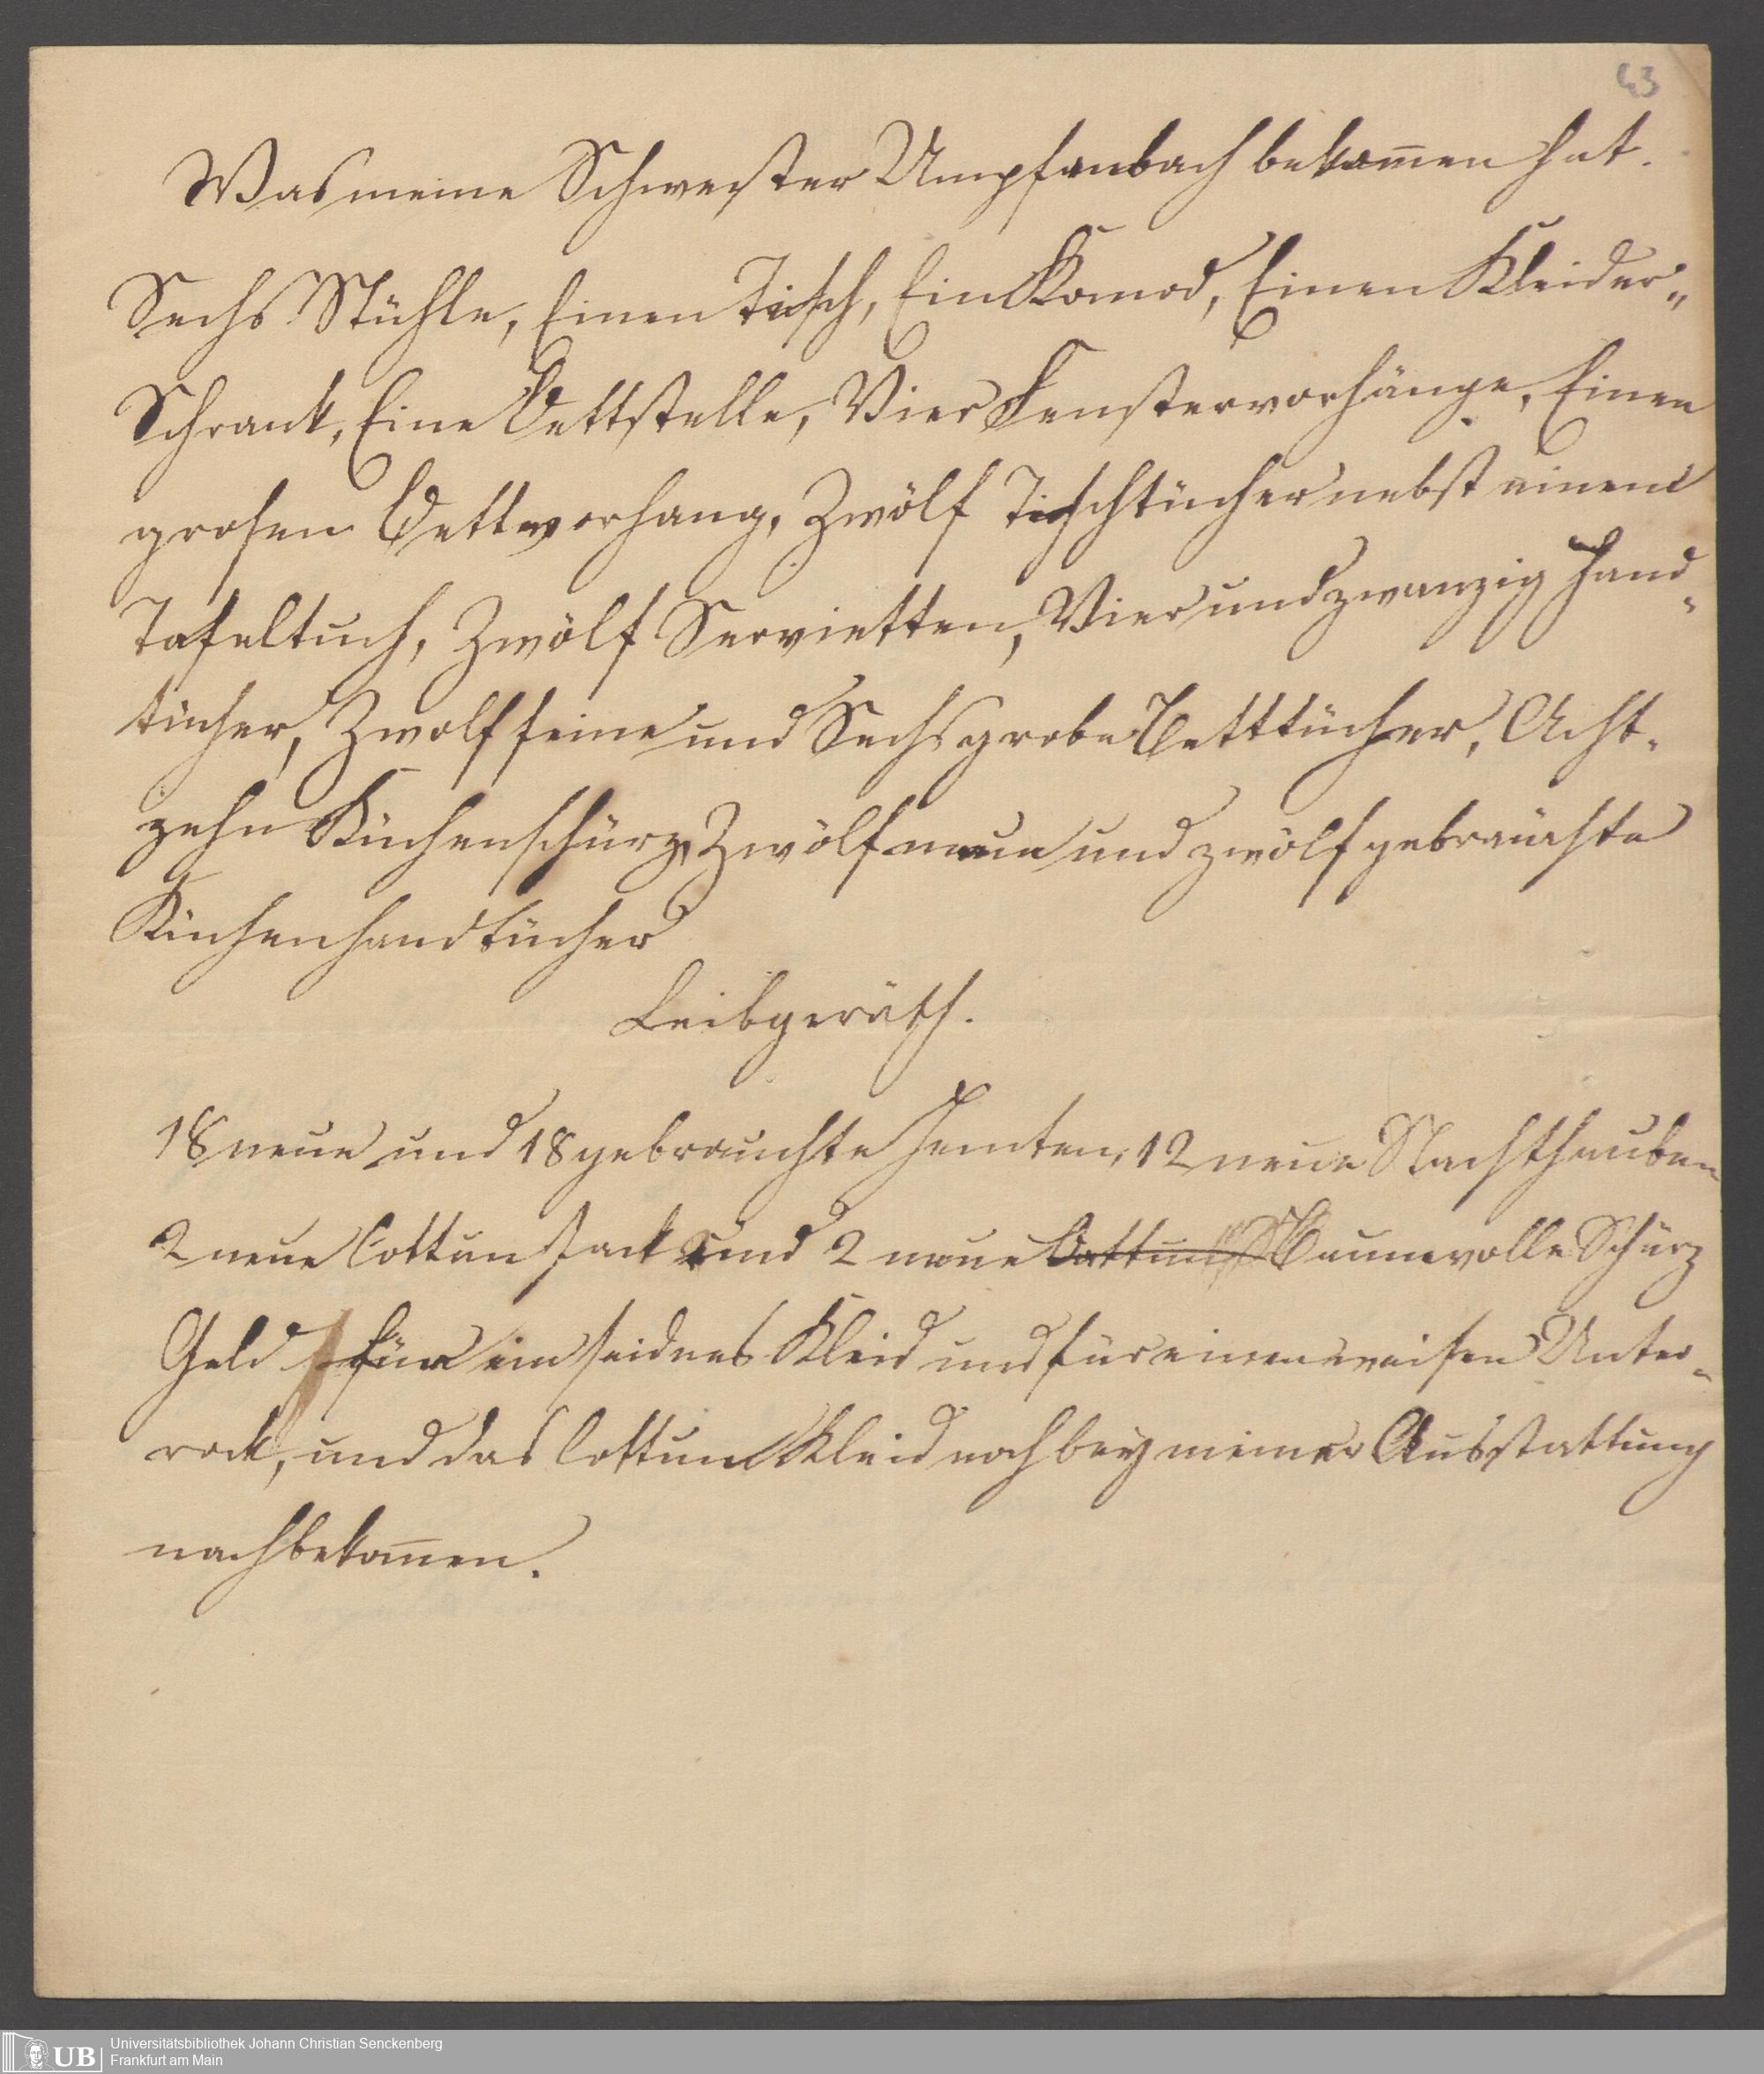 43
Was meine Schwester Umpfenbach bekom̅en hat.
Sechs Stühle, Einen Tisch, Ein Komod, Einen Kleider„
Schrank, Eine Bettstelle, Vier Fenstervorhänge, Einen
grosen Bettvorhang, Zwölf Tischtücher nebst einem
Tafeltuch, Zwölf Servietten, Vier und zwanzig Hand-
tücher, Zwolf feine und Sechs grobe Betttücher, Acht-
zehn Küchenschürz, Zwölf neue und zwölf gebrauchte
Küchenhandtücher
Leibgeräth.
18 neue und 18 gebrauchte Hemten, 12 neue Nachthauben
2 neue Cottun Jack und 2 neue Cattun Baumwolle Schürz
Geld für ein seidnes Kleid und für einen weisen Unter-
rock, und das Cottun Kleid noch bey meiner Ausstattung
nachbekom̅en.
UB
Universitätsbibliothek Johann Christian Senckenberg
Frankfurt am Main